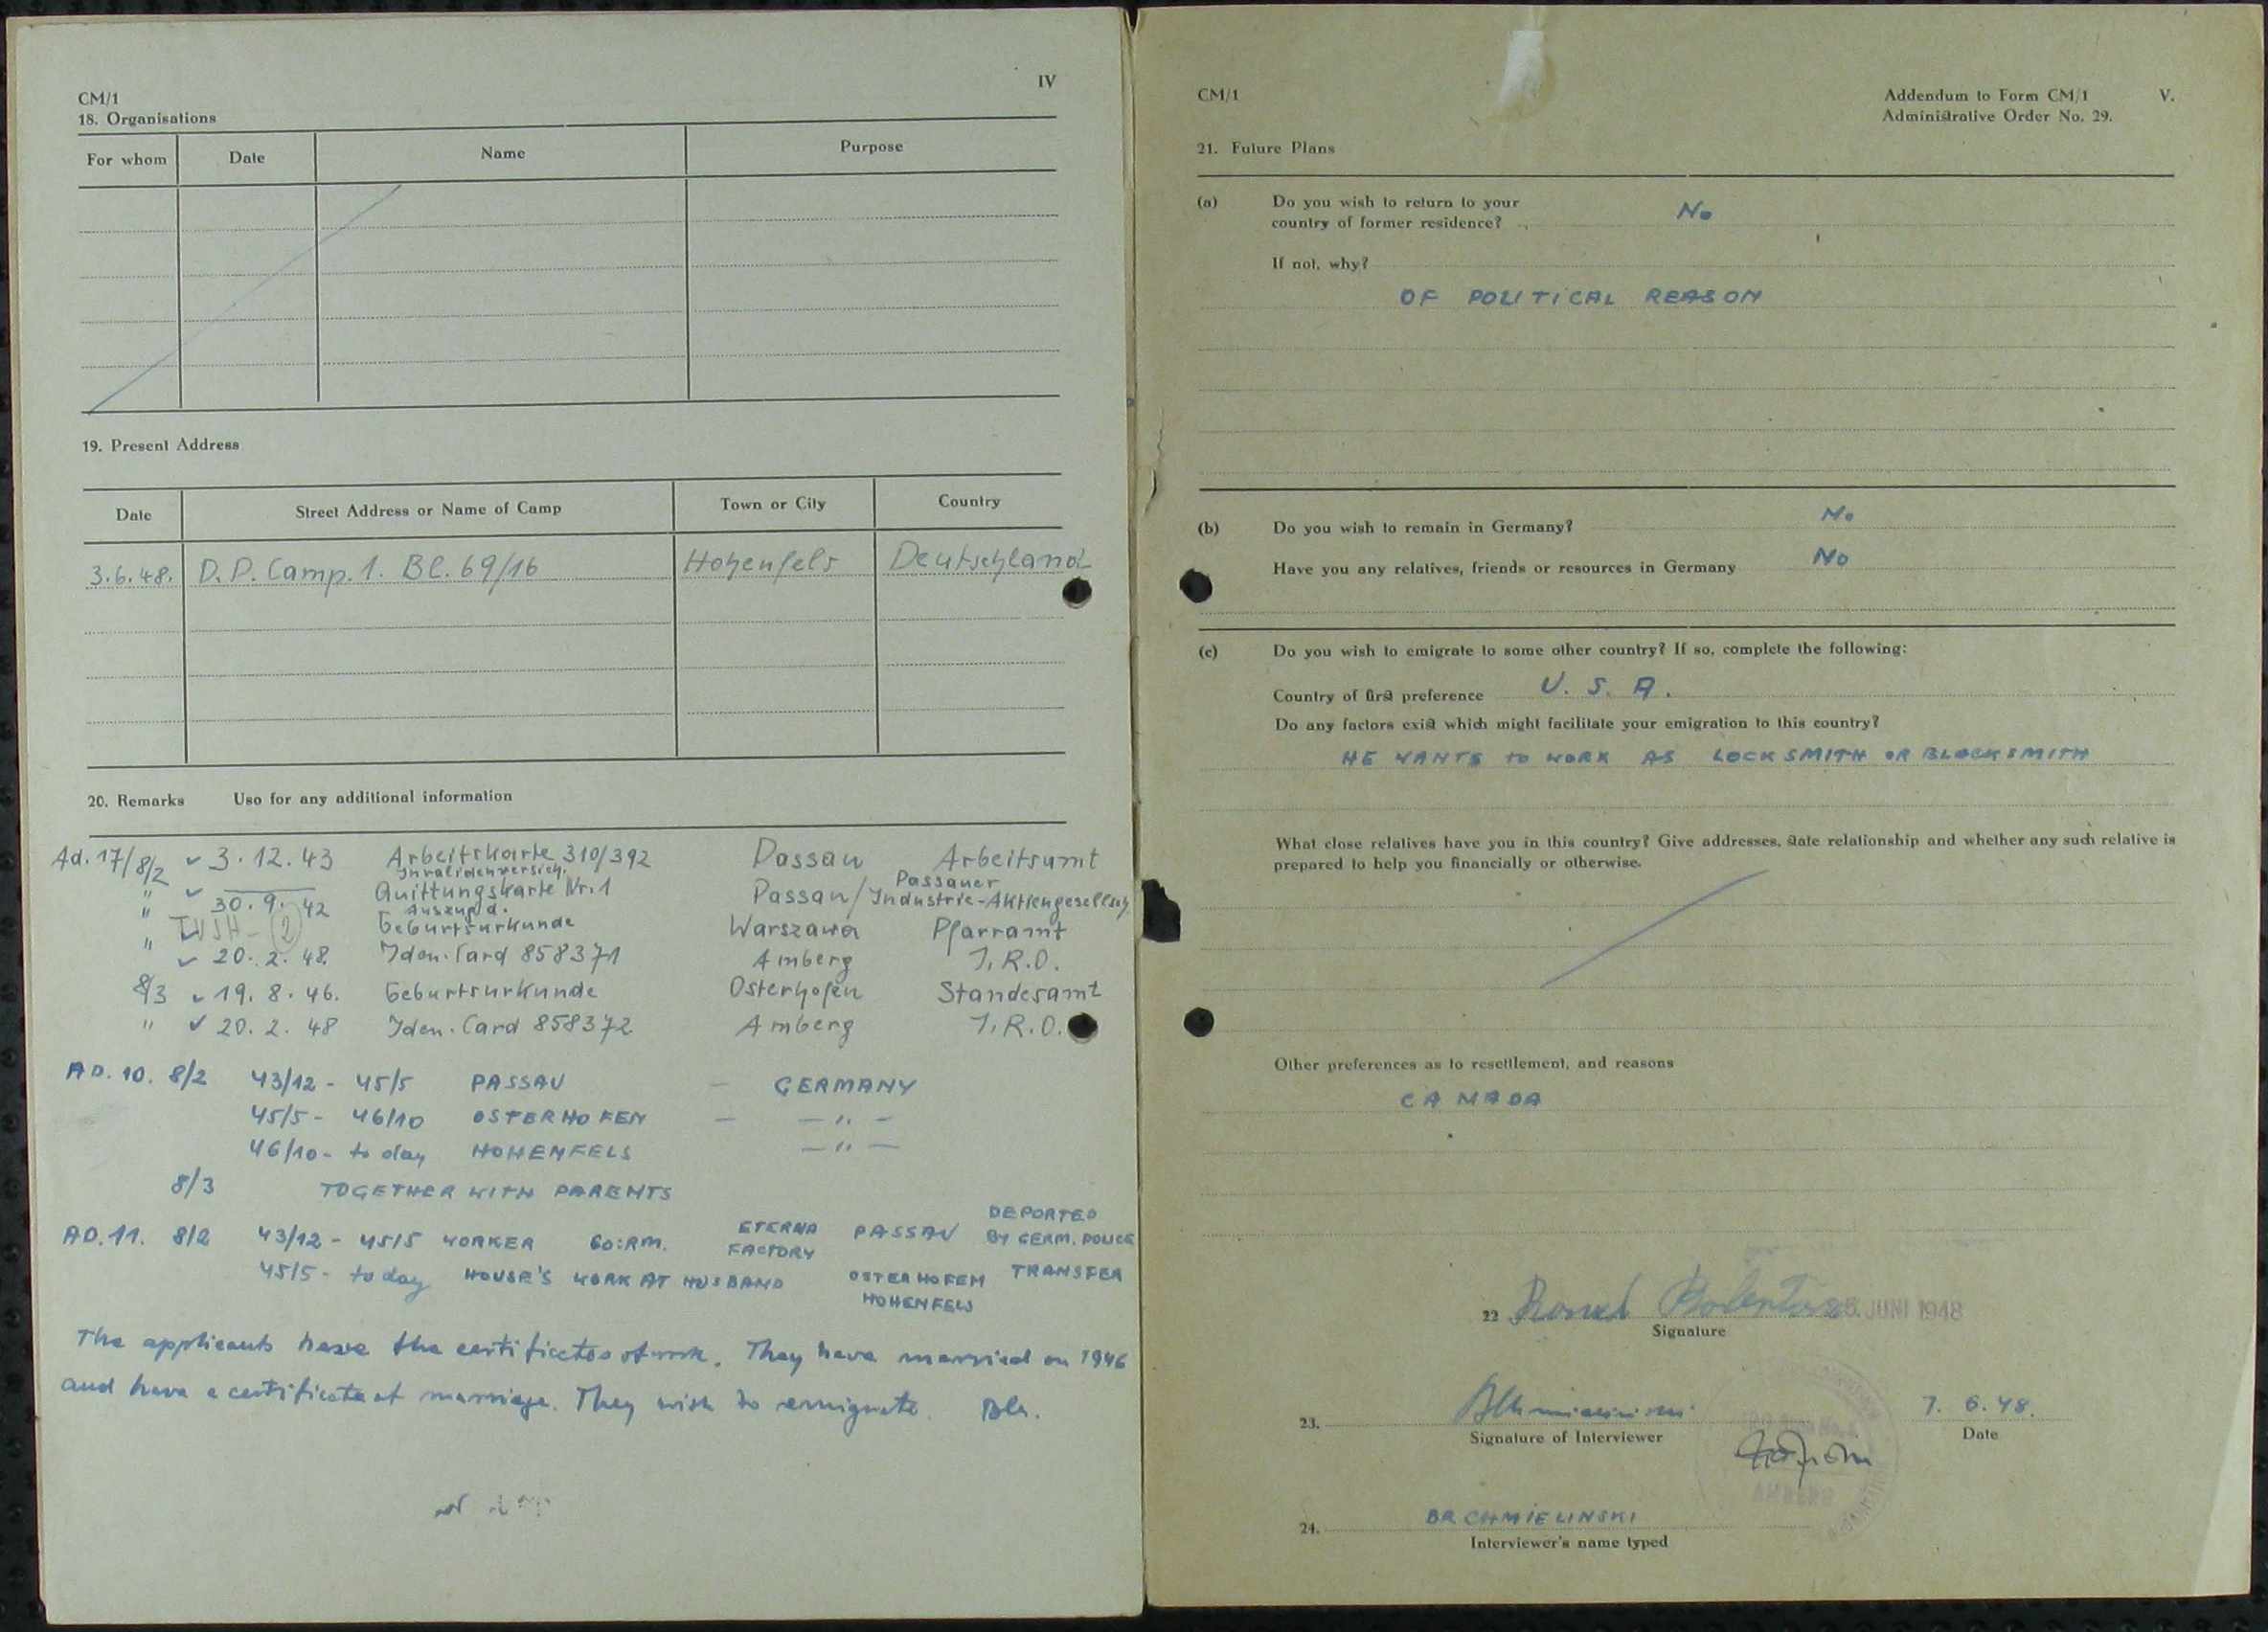 CM/1
IV
18. Organisations
For whom Date Name Purpose
19. Present Address
Date Street Address or Name of Camp Town or City Country
3.6.48. D.P. Camp. 1. Bl. 69/16 Hohenfels Deutschland
20. Remarks Use for any additional information
Ad. 17/8/2 ✓ 3.12.43 Arbeitskarte 310/392 Passau Arbeitsamt
Invalidenversich. Passauer
" ✓ — Quittungskarte Nr. 1 Passau/Industrie-Aktiengesellsch.
Auszug d.
" 30.9.42 Geburtsurkunde Warszawa Pfarramt
" ✓ 20.2.48. Iden. Card 858371 Amberg I.R.O.
8/3 ✓ 19.8.46. Geburtsurkunde Osterhofen Standesamt
" ✓ 20.2.48 Iden. Card 858372 Amberg I.R.O.
AD. 10. 8/2 43/12 - 45/5 PASSAU — GERMANY
45/5 - 46/10 OSTERHOFEN — — " —
46/10 - to day HOHENFELS — " —
8/3 TOGETHER WITH PARENTS
AD. 11. 8/2 43/12 - 45/5 WORKER 60:RM. ETERNA FACTORY PASSAU DEPORTED BY GERM. POLICE
45/5 - to day HOUSE'S WORK AT HUSBAND OSTERHOFEN HOHENFELS TRANSFER
The applicants have the certificates of work. They have married on 1946
and have a certificate of marriage. They wish to emigrate.
CM/1
Addendum to Form CM/1 V.
Administrative Order No. 29.
21. Future Plans
(a) Do you wish to return to your
country of former residence? No
If not, why?
OF POLITICAL REASON
(b) Do you wish to remain in Germany? No
Have you any relatives, friends or resources in Germany No
(c) Do you wish to emigrate to some other country? If so, complete the following:
Country of first preference U. S. A.
Do any factors exist which might facilitate your emigration to this country?
HE WANTS to WORK AS LOCKSMITH OR BLACKSMITH
What close relatives have you in this country? Give addresses, state relationship and whether any such relative is
prepared to help you financially or otherwise.
Other preferences as to resettlement, and reasons
CANADA
22 JUNI 1948
Signature
23. 7. 6. 48.
Signature of Interviewer Date
24. BR CHMIELINSKI
Interviewer's name typed